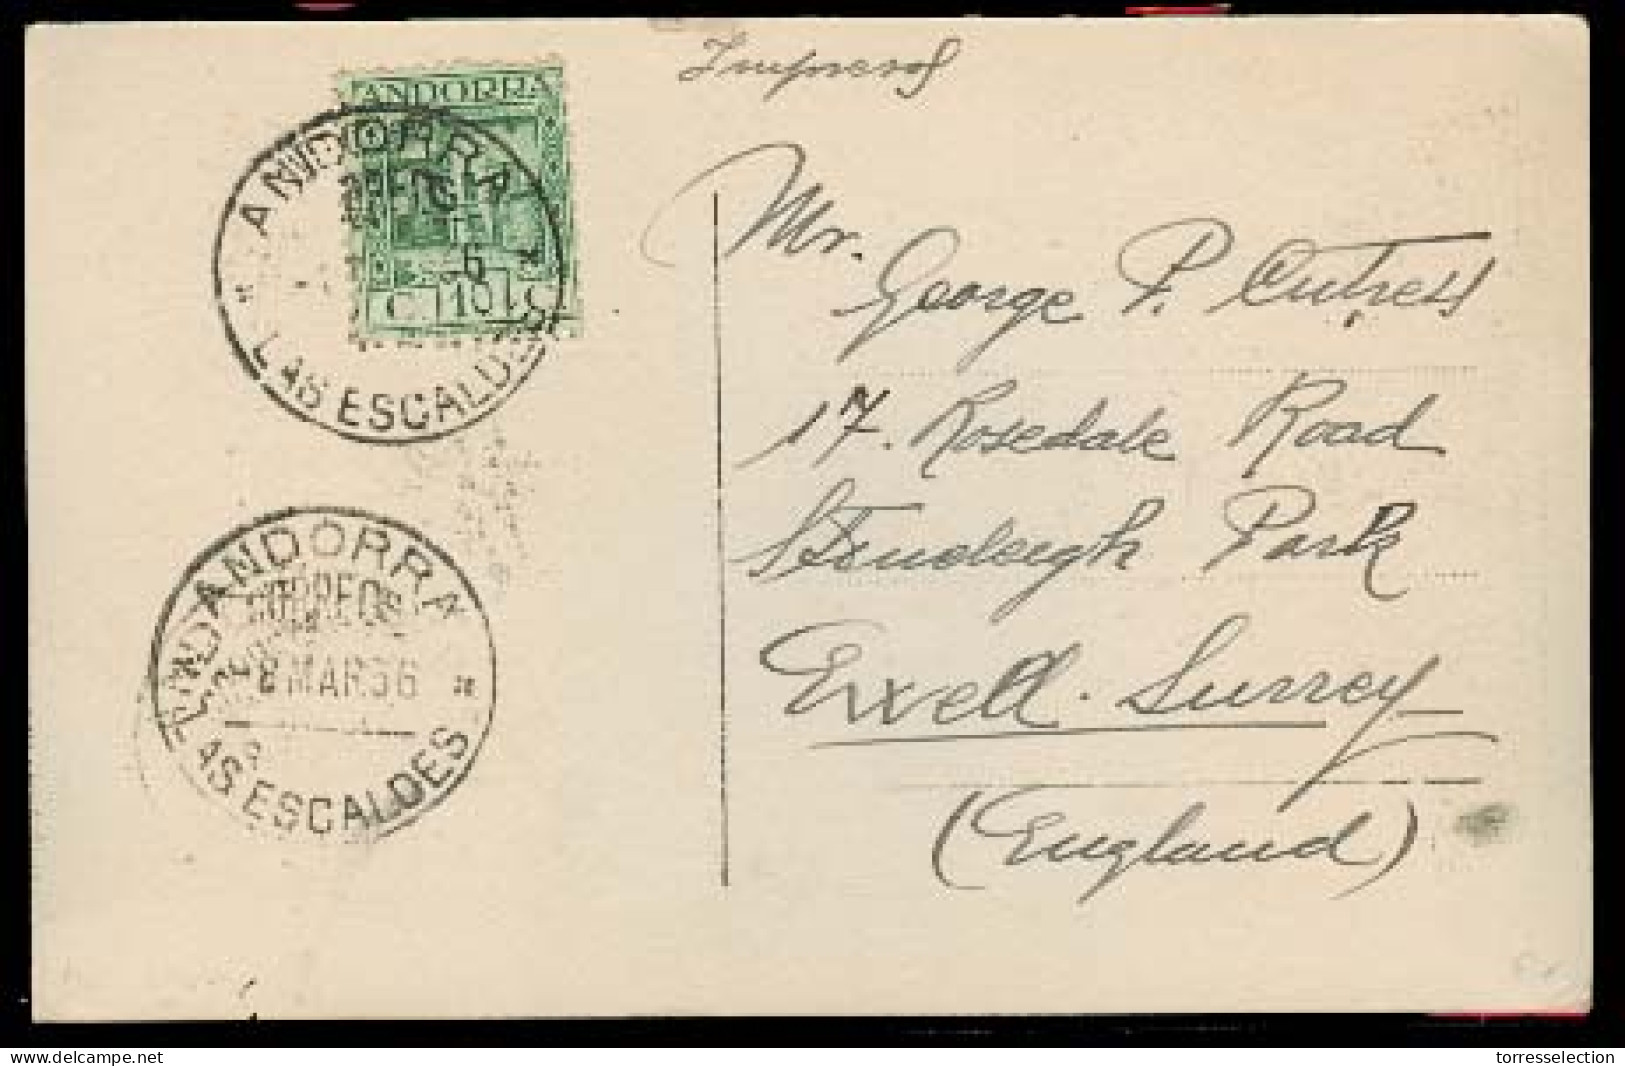 Impresos
ANDORRA
C. 10
ANDORRA
LAS ESCALDES
Mr.
George P.
17. Rosedale Road
Stoneleigh Park
Ewell. Surrey
(England)
ANDORRA
CORREOS
8 MAR 36
LAS ESCALDES
delcampe.net
torresselection